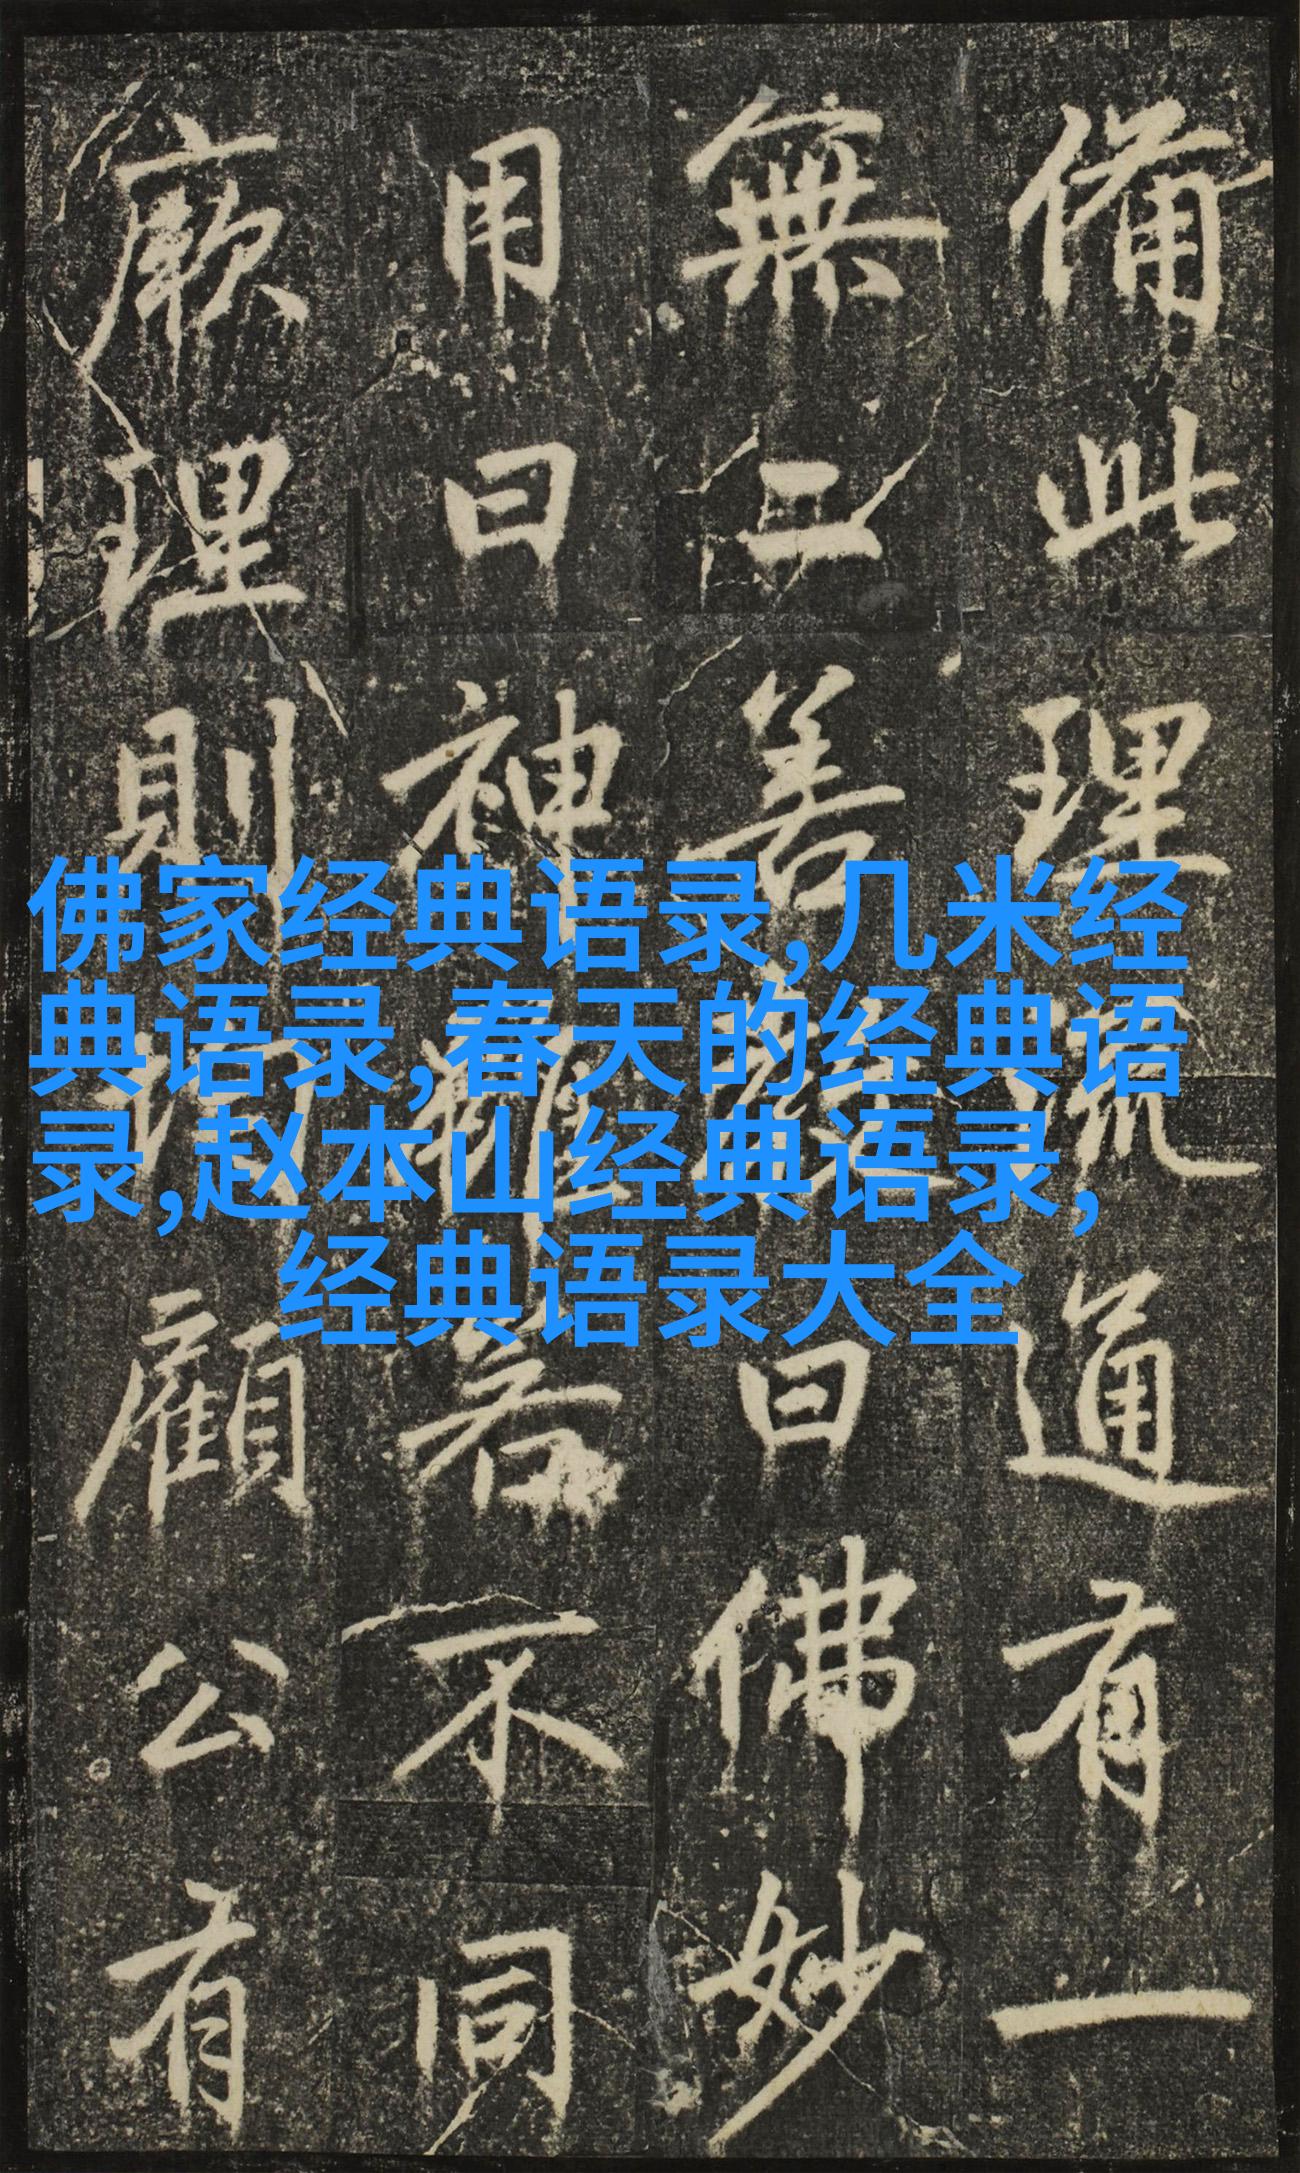 備此理流通有一
無二善曰佛妙
用曰神雖若不同
厥理則顧公有
佛家经典语录,几米经
典语录,春天的经典语
录,赵本山经典语录,
经典语录大全